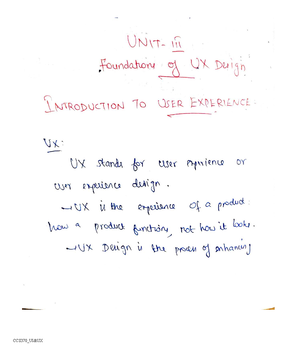 UNIT-III
Foundations of UX Design
INTRODUCTION TO USER EXPERIENCE.
UX:
UX stands for user experience or
user experience design.
→UX is the experience of a product
how a product functions, not how it looks.
→UX Design is the process of enhancing
CCS370_UI&UX